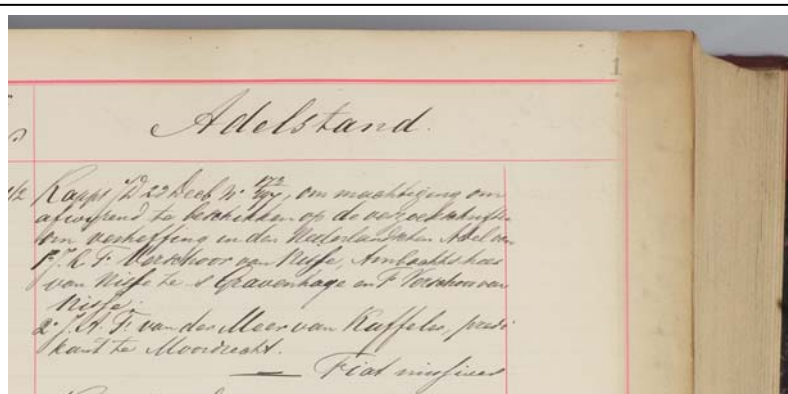 1
Adelstand.
1/2 Rapp. JD 23 Decb. No. 172, om machtiging om
afwijzend te beschikken op de verzoekschriften
om verheffing in den Nederlandschen Adel van
1o J. C. F. Verschoor van Nisse, Ambachtsheer
van Nisse te s Gravenhage en F. Verschoor van
Nisse.
2o J. A. F. van der Meer van Kuffeler, predi
kant te Moordrecht.
— Fiat missives